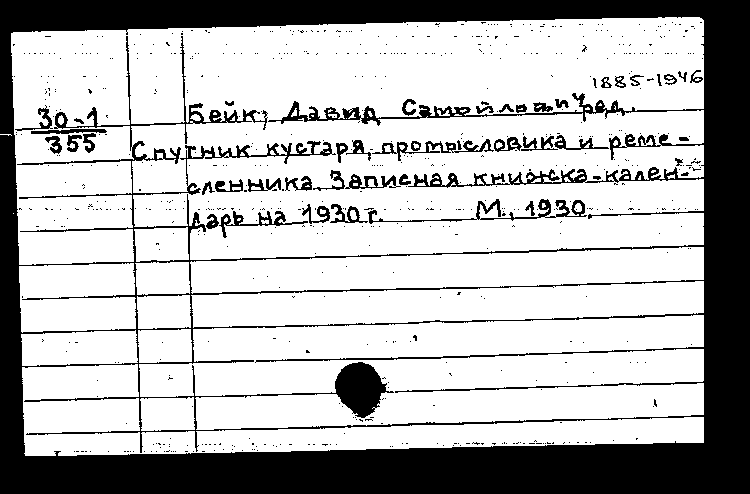 1885-1946
30-1
355
Бейк, Давид Самойлович, ред.
Спутник кустаря, промысловика и реме-
сленника. Записная книжка-кален-
дарь на 1930 г. М., 1930.